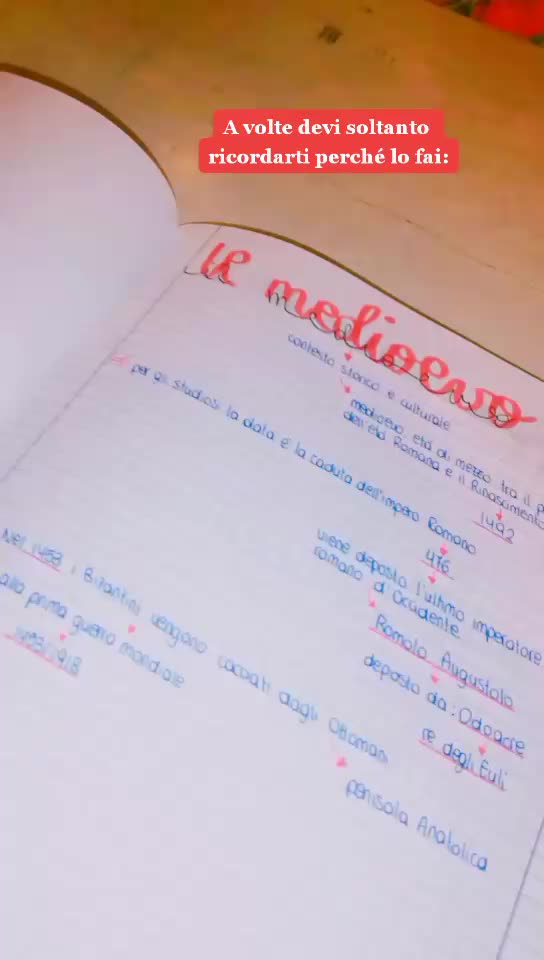 A volte devi soltanto
ricordarti perché lo fai:
Il medioevo
contesto storico e culturale
medioevo: età di mezzo tra il
dell'età Romana e il Rinascimento
1492
per gli studiosi la data è la caduta dell'impero Romano
476
viene deposto l'ultimo imperatore
romano d'Occidente
Romolo Augustolo
deposto da: Odoacre
re degli Euli
Nel 1453 i Bizantini vengono cacciati dagli Ottomani
penisola Anatolica
alla prima guerra mondiale